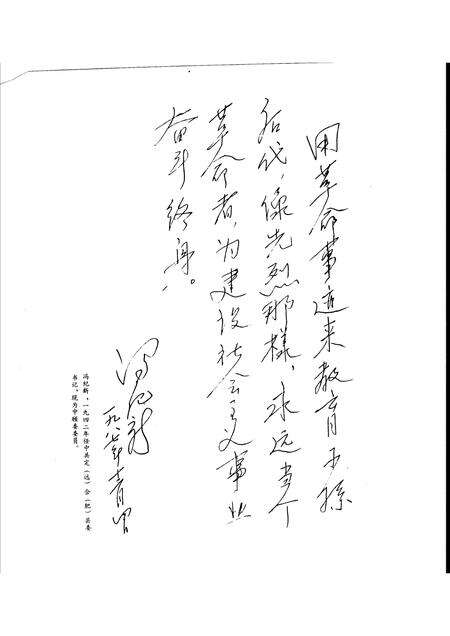 用革命事迹来教育子孫
后代，像先烈那樣，永远当个
革命者，为建设社会主义事业
奋斗终身。
冯纪新
一九八七年青
冯纪新，一九四二年任中共定（远）合（肥）县委
书记，现为中顾委委员。